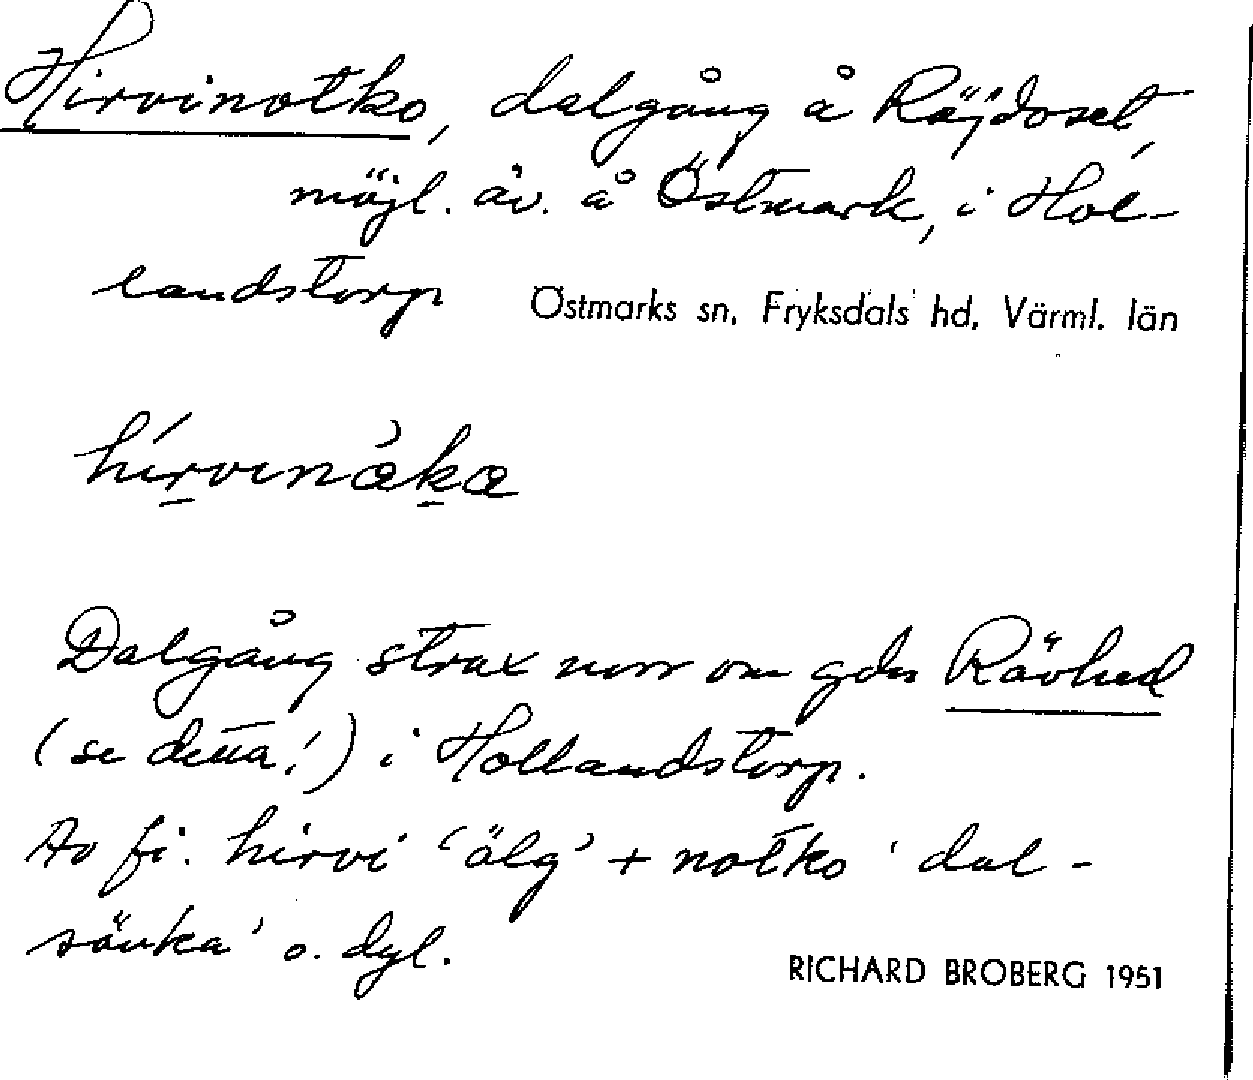 Hirvinotko, dalgång å Röjdoset,
möjl. äv. å Östmark, i Hol-
landstorp Östmarks sn, Fryksdals hd, Värml. län
Dalgång strax norr om gdn Rävhed
(se detta!) i Hollandstorp.
Av fi. hirvi 'älg' + notko 'dal-
sänka' o. dyl.
RICHARD BROBERG 1951